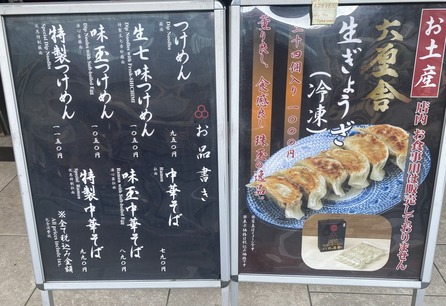 お品書き
つけめん
Dip Noodles
九五〇円
生七味つけめん
Dip Noodles with fresh SHICHIMI
一〇五〇円
味玉つけめん
一〇五〇円
特製つけめん
Special Dip Noodles
一一五〇円
中華そば
Ramen
七九〇円
味玉中華そば
八九〇円
特製中華そば
Special Ramen
九九〇円
※全て税込み金額
お土産
店内お食事用は販売しておりません
六厘舎
生ぎょうざ
(冷凍)
二十四個入り 一〇〇〇円
香り良し、食感良し